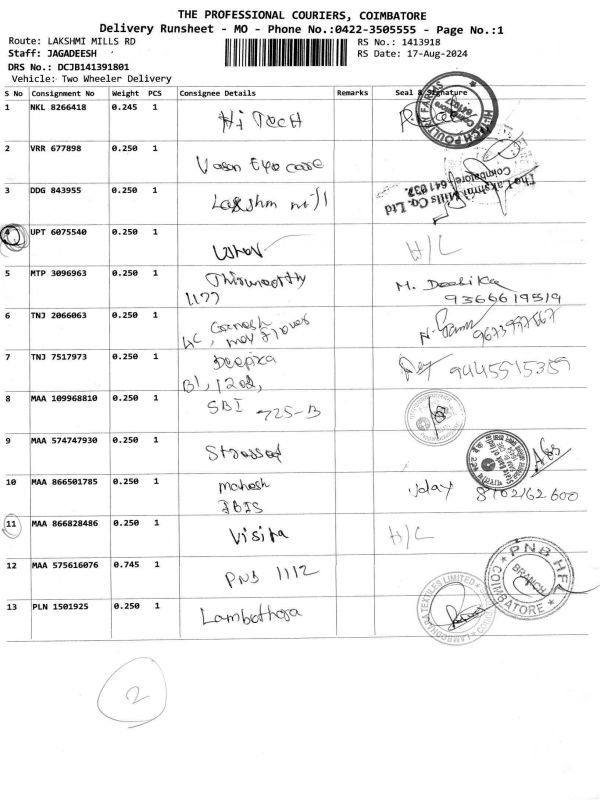 THE PROFESSIONAL COURIERS, COIMBATORE
Delivery Runsheet - MO - Phone No.:0422-3505555 - Page No.:1
Route: LAKSHMI MILLS RD RS No.: 1413918
Staff: JAGADEESH RS Date: 17-Aug-2024
DRS No.: DCJB141391801
Vehicle: Two Wheeler Delivery
S No Consignment No Weight PCS Consignee Details Remarks Seal & Signature
1 NKL 8266418 0.245 1 Hi Tech HI-TECH POULTRY FARMS
2 VRR 677898 0.250 1 Vasan Eye care
3 DDG 843955 0.250 1 Lakshm mill The Lakshmi Mills Co. Ltd Coimbatore 641 037.
4 UPT 6075540 0.250 1 H/C
5 MTP 3096963 0.250 1 Thirumoorthy M. Deepika
1177 9366619519
6 TNJ 2066063 0.250 1 Ganesh
4C, may flower
7 TNJ 7517973 0.250 1 Deepika 9445515359
B1, 1202,
8 MAA 109968810 0.250 1 SBI 725-B
9 MAA 574747930 0.250 1 Stressed
10 MAA 866501785 0.250 1 mahesh Uday 8702162600
JBIS
11 MAA 866828486 0.250 1 Visita H/C
12 MAA 575616076 0.745 1 PNB 1112 PNB HFL BRANCH COIMBATORE
13 PLN 1501925 0.250 1 Lambothara TEXTILES LIMITED
2